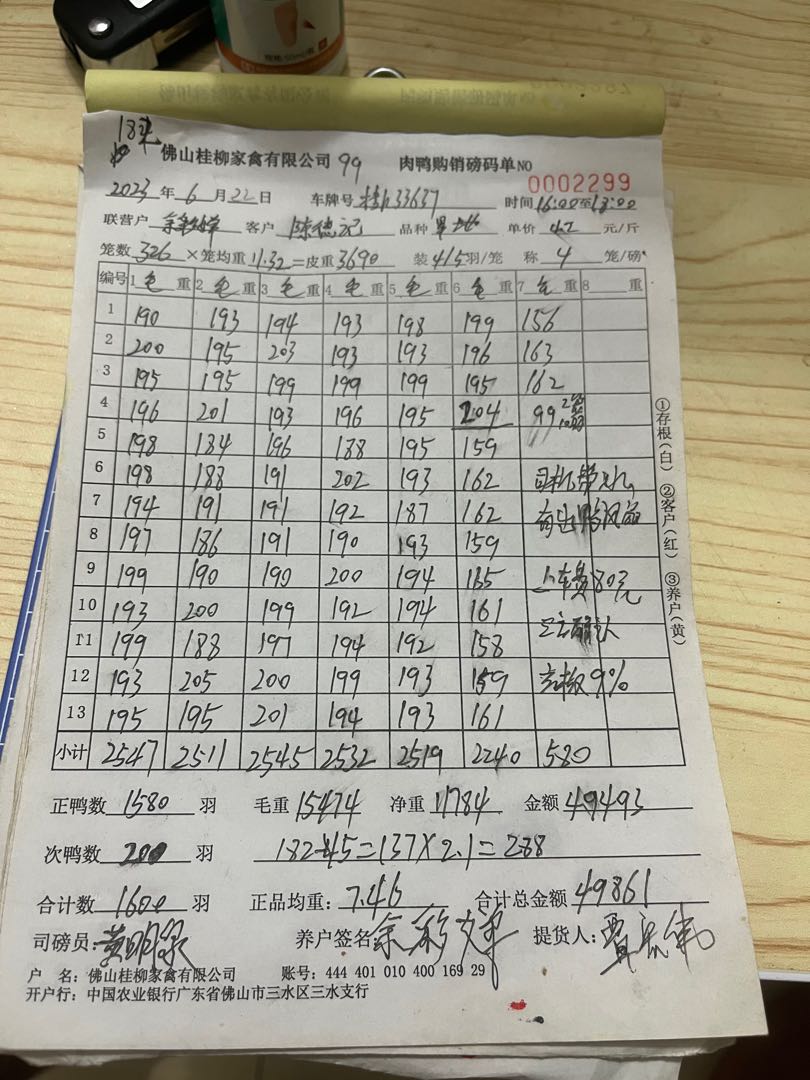 18
佛山桂柳家禽有限公司 99 肉鸭购销磅码单NO
0002299
2023年6月22日 车牌号 33637 时间16:00至18:00
联营户 客户 陈德记 品种 单价 4.2 元/斤
笼数 326 ×笼均重 11.32=皮重 3690 装 4/5羽/笼 称 4 笼/磅
编号 1毛重 2毛重 3毛重 4毛重 5毛重 6毛重 7毛重 8 重
1 190 193 194 193 198 199 156
2 200 195 203 193 193 196 163
3 195 195 199 199 199 195 162
4 196 201 193 196 195 204 99
5 198 184 196 188 195 159
6 198 188 191 202 193 162
7 194 191 191 192 187 162
8 197 186 191 190 193 159
9 199 190 190 200 194 165 上车费180元
10 193 200 199 192 194 161
11 199 188 197 194 192 158
12 193 205 200 199 193 159 9%
13 195 195 201 194 193 161
小计 2547 2511 2545 2532 2519 2240 580
①存根(白) ②客户(红) ③养户(黄)
正鸭数 1580 羽 毛重 15474 净重 11784 金额 49493
次鸭数 20 羽 182-45=137×2.1=288
合计数 1600 羽 正品均重: 7.46 合计总金额 49861
司磅员: 黄明 养户签名 余彩 提货人:
户 名: 佛山桂柳家禽有限公司 账号: 444 401 010 400 169 29
开户行: 中国农业银行广东省佛山市三水区三水支行